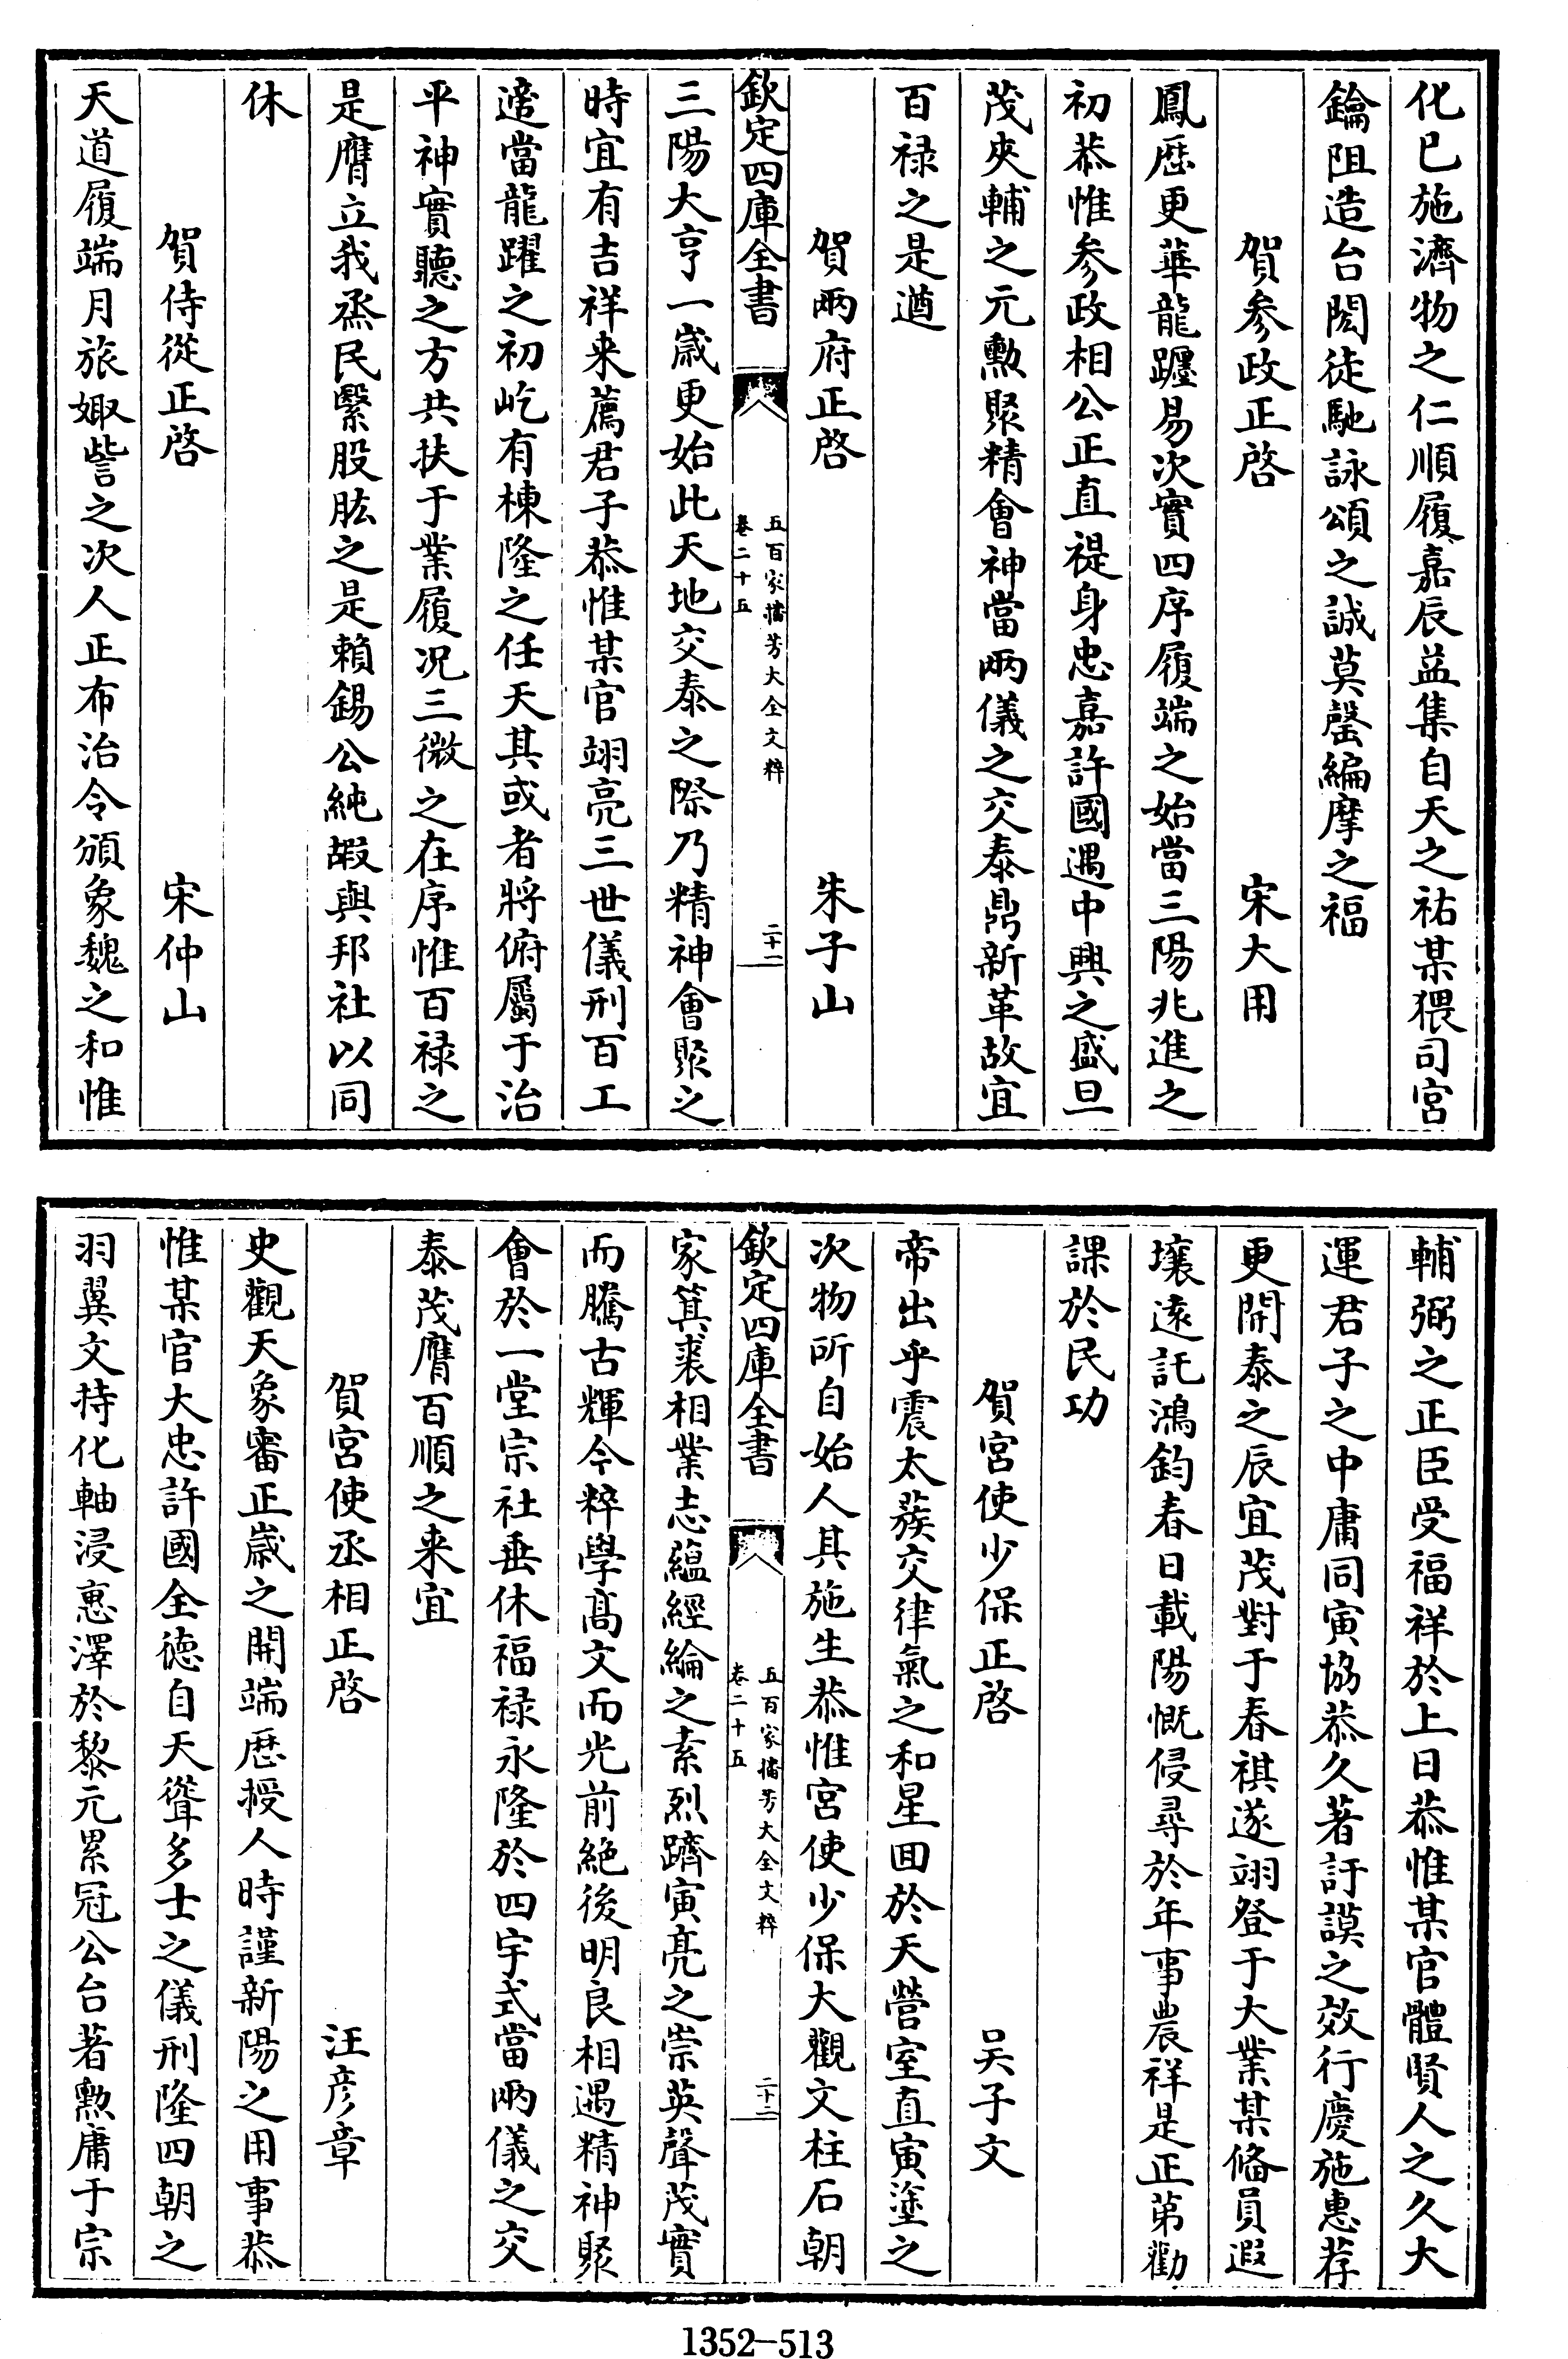 化已施濟物之仁順履嘉辰益集自天之祐某猥司宮
鑰阻造台閎徒馳詠頌之誠莫罄編摩之福
賀參政正啓 宋大用
鳳歴更華龍躔易次實四序履端之始當三陽兆進之
初恭惟參政相公正直禔身忠嘉許國遇中興之盛旦
茂夾輔之元勲聚精會神當兩儀之交泰鼎新革故宜
百禄之是遒
賀兩府正啓 朱子山
欽定四庫全書 五百家播芳大全文粹 卷二十五 二十一
三陽大亨一嵗更始此天地交泰之際乃精神會聚之
時宜有吉祥来薦君子恭惟某官翊亮三世儀刑百工
適當龍躍之初屹有棟隆之任天其或者將俯屬于治
平神實聽之方共扶于業履况三微之在序惟百禄之
是膺立我烝民繄股肱之是賴錫公純嘏與邦社以同
休
賀侍從正啓 宋仲山
天道履端月旅娵訾之次人正布治令頒象魏之和惟
輔弼之正臣受福祥於上日恭惟某官體賢人之久大
運君子之中庸同寅協恭久著訏謨之效行慶施惠荐
更開泰之辰宜茂對于春祺遂翊登于大業某偹員遐
壤遠託鴻鈞春日載陽慨侵尋於年事農祥是正苐勸
課於民功
賀宮使少保正啓 吴子文
帝出乎震太蔟交律氣之和星囘於天營室直寅塗之
次物所自始人其施生恭惟宮使少保大觀文柱石朝
欽定四庫全書 五百家播芳大全文粹 卷二十五 二十二
家箕裘相業志蘊經綸之素烈躋寅亮之崇英聲茂實
而騰古輝今粹學髙文而光前絶後明良相遇精神聚
會於一堂宗社垂休福禄永隆於四宇式當兩儀之交
泰茂膺百順之来宜
賀宮使丞相正啓 汪彦章
史觀天象審正嵗之開端厯授人時謹新陽之用事恭
惟某官大忠許國全德自天聳多士之儀刑隆四朝之
羽翼文持化軸浸惠澤於黎元累冠公台著勲庸于宗
1352-513